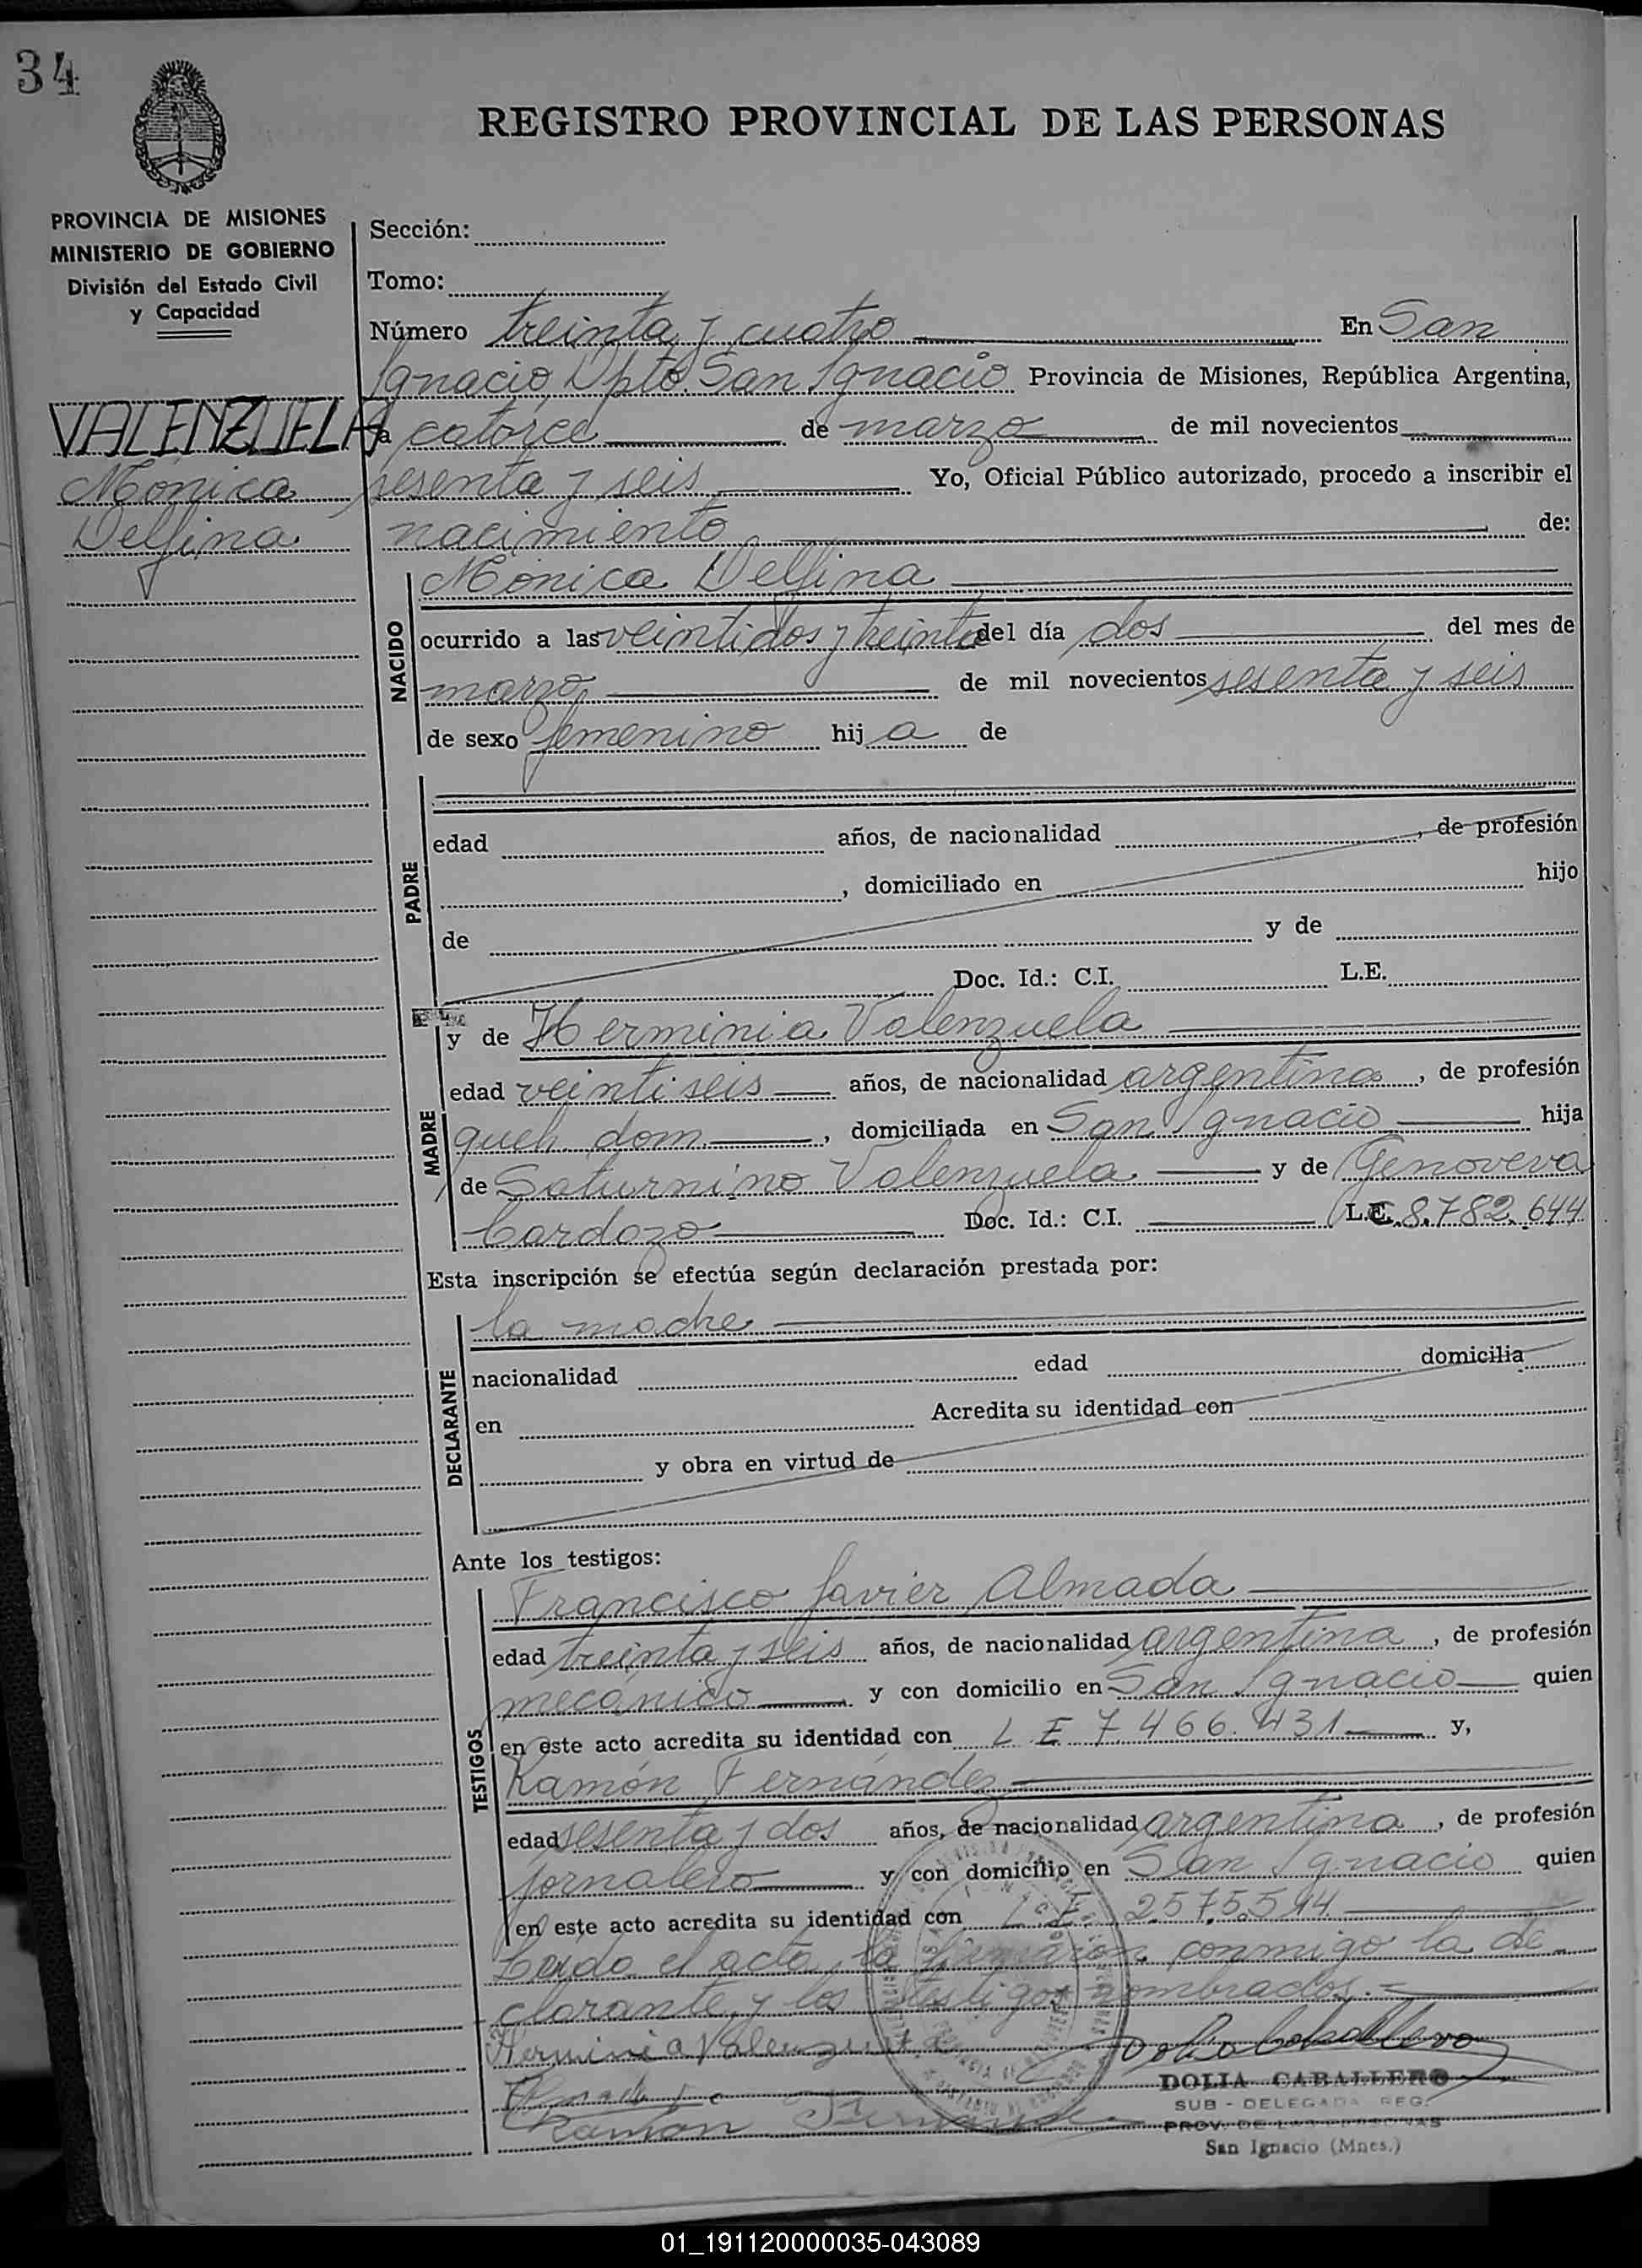 34
REGISTRO PROVINCIAL DE LAS PERSONAS
PROVINCIA DE MISIONES
MINISTERIO DE GOBIERNO
División del Estado Civil
y Capacidad
VALENZUELA
Mónica
Delfina
Sección:
Tomo:
Número treinta y cuatro En San
Ignacio, Dpto. San Ignacio Provincia de Misiones, República Argentina,
a catorce de marzo de mil novecientos
sesenta y seis Yo, Oficial Público autorizado, procedo a inscribir el
nacimiento de:
NACIDO
Mónica Delfina
ocurrido a las veintidos y treinta del día dos del mes de
marzo de mil novecientos sesenta y seis
de sexo femenino hij a de
PADRE
edad años, de nacionalidad , de profesión
, domiciliado en hijo
de y de
Doc. Id.: C.I. L.E.
MADRE
y de Herminia Valenzuela
edad veintiseis años, de nacionalidad argentina, de profesión
queh. dom. , domiciliada en San Ignacio hija
de Saturnino Valenzuela y de Genoveva
Cardozo Doc. Id.: C.I. L.C. 8.782.644
Esta inscripción se efectúa según declaración prestada por:
DECLARANTE
la madre
nacionalidad edad domicilia
en Acredita su identidad con
y obra en virtud de
Ante los testigos:
TESTIGOS
Francisco Javier Almada
edad treinta y seis años, de nacionalidad argentina, de profesión
mecánico y con domicilio en San Ignacio quien
en este acto acredita su identidad con L E 7.466.431 y,
Ramón Fernández
edad sesenta y dos años, de nacionalidad argentina, de profesión
jornalero y con domicilio en San Ignacio quien
en este acto acredita su identidad con L.E. 2575.514
Leido el acta, la firmaron conmigo la de-
clarante y los testigos nombrados.=
Herminia Valenzuela
Ramon Fernandez
DOLIA CABALLERO
SUB - DELEGADA REG.
PROV. DE LAS PERSONAS
San Ignacio (Mnes.)
01_191120000035-043089